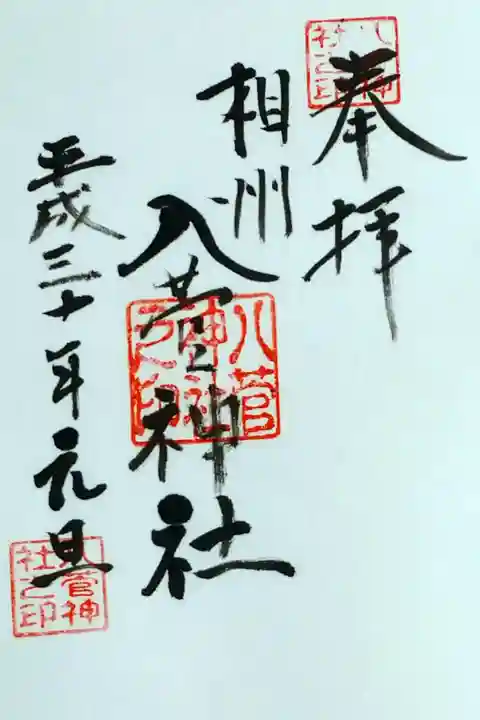 奉拝
相州
八菅神社
平成三十年元旦
八菅神社之印
八菅神社之印
八菅神社之印